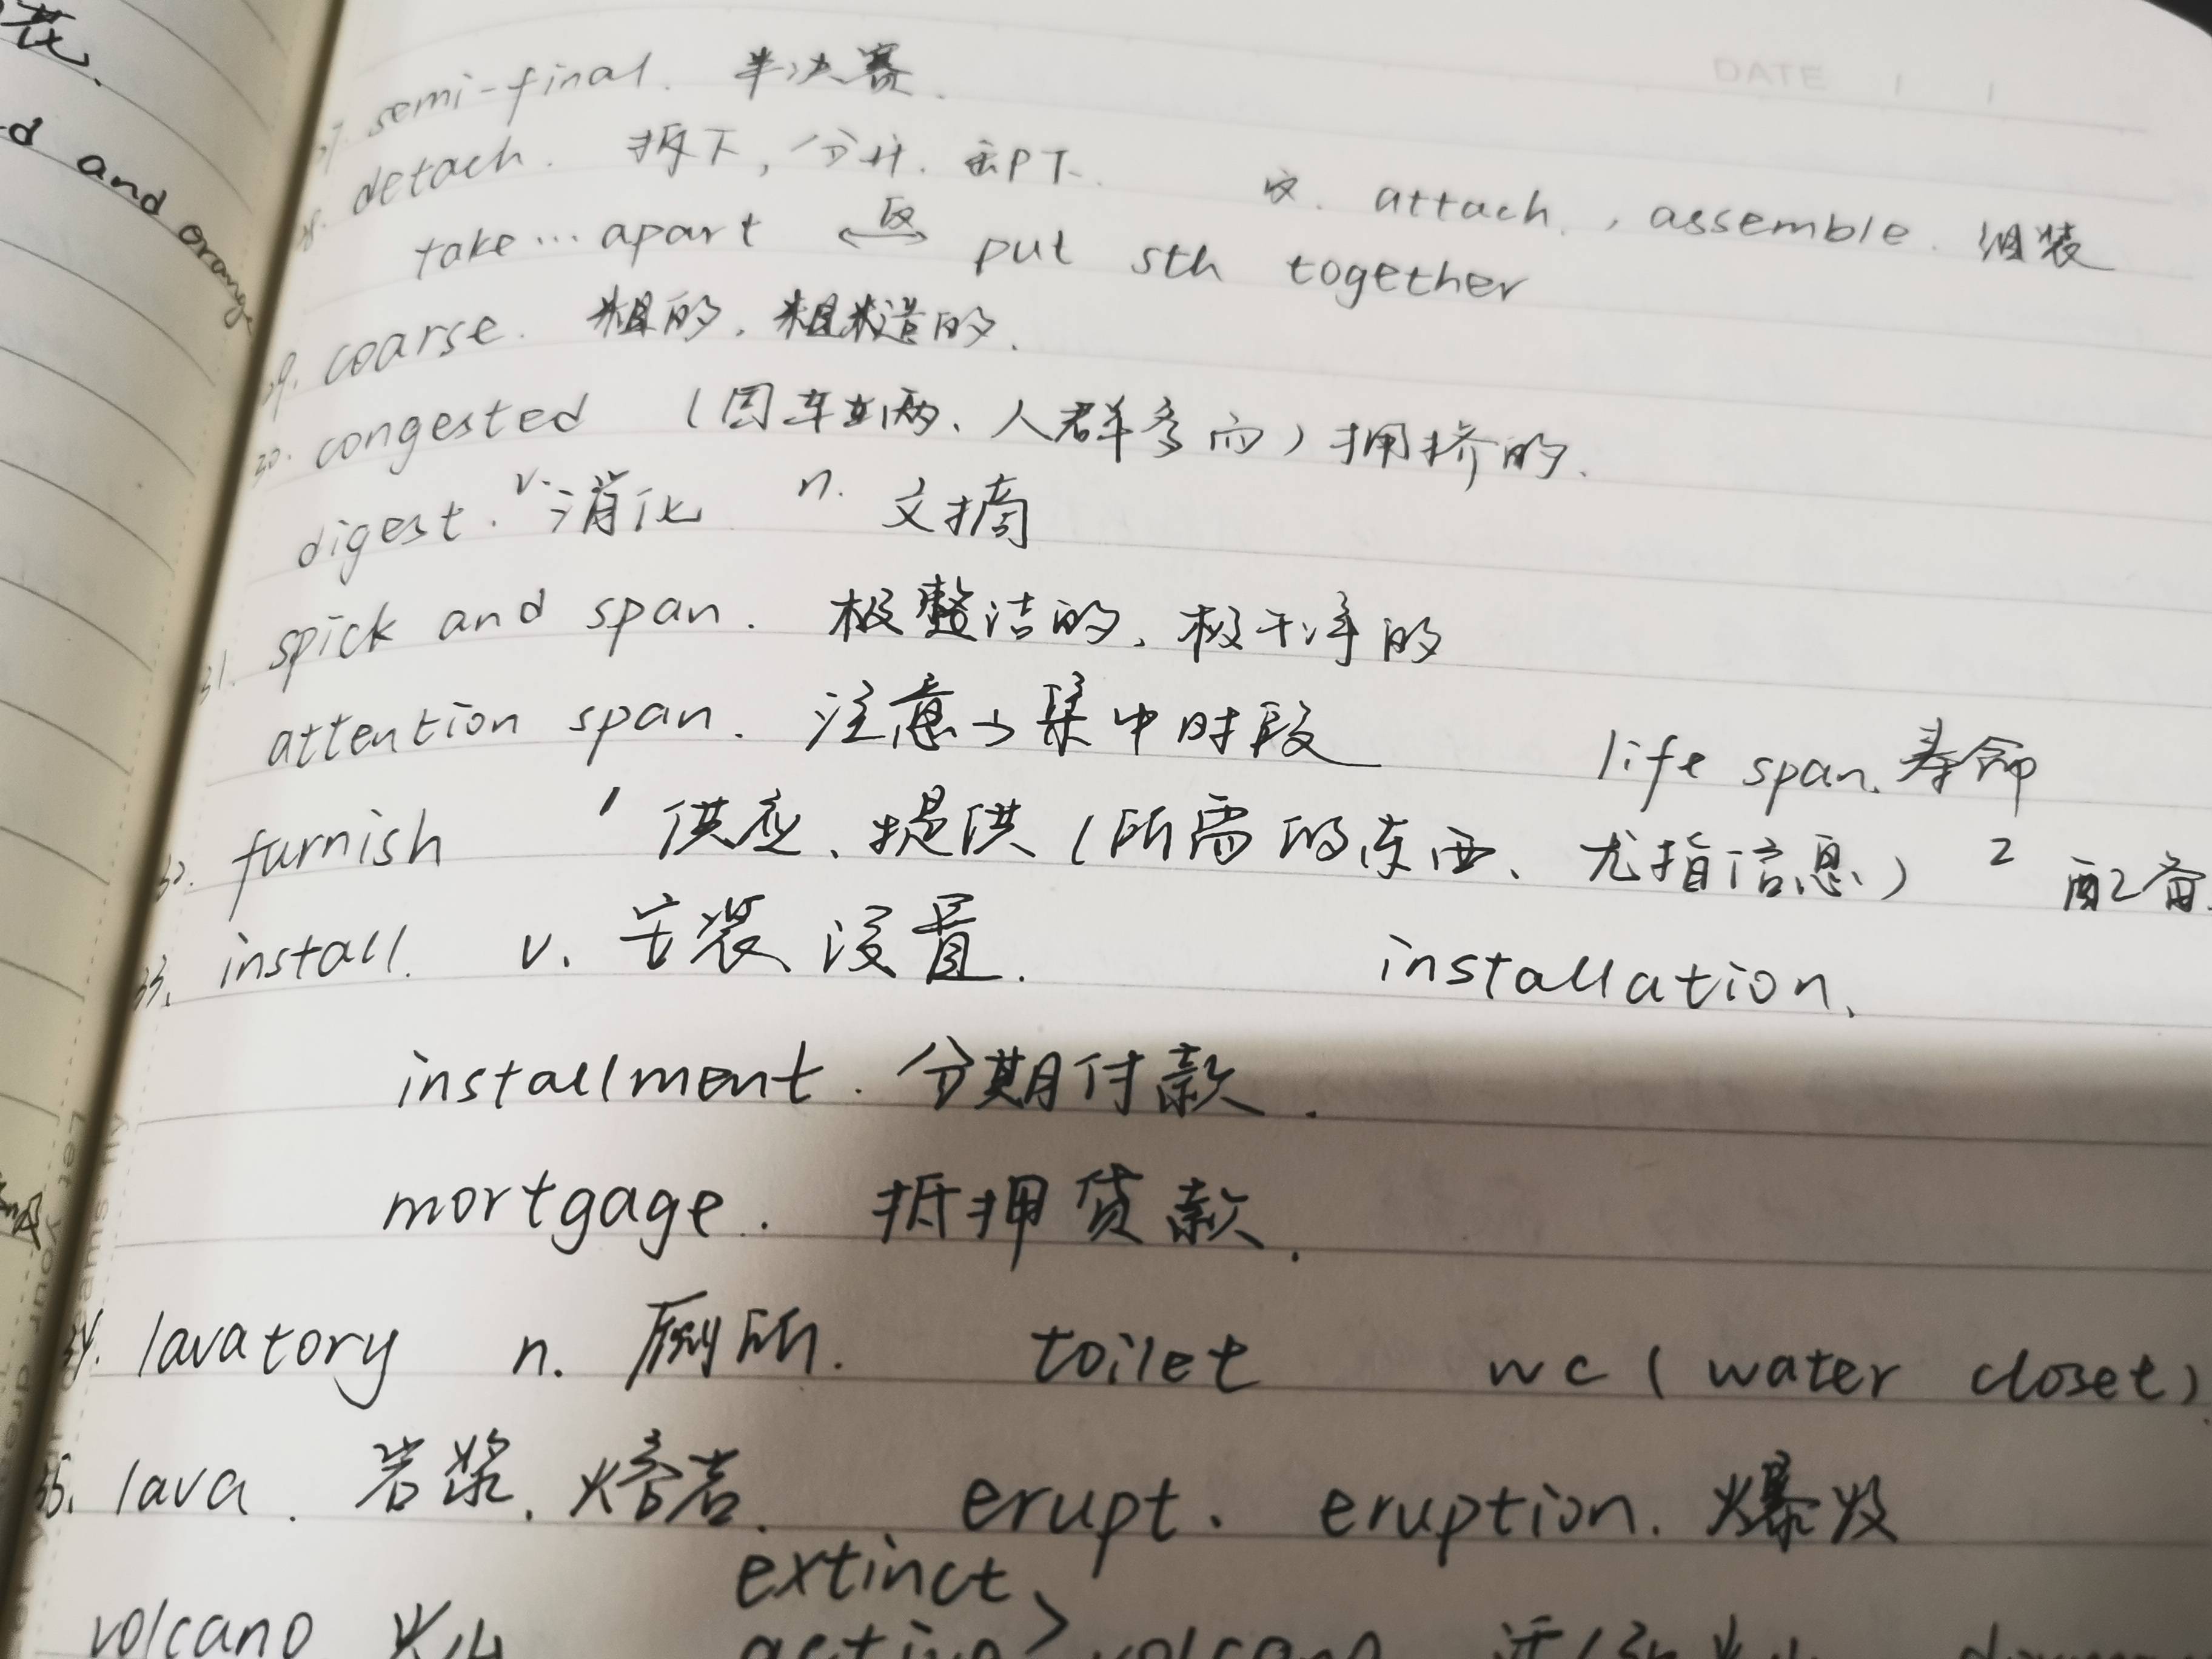 花.
d and orange
DATE / /
27. semi-final. 半决赛.
28. detach. 拆下, 分开. 反. attach., assemble. 组装
take… apart ⟷反 put sth together
29. coarse. 粗的. 粗糙的.
30. congested (因车辆、人群多而) 拥挤的.
digest. v. 消化 n. 文摘
31. spick and span. 极整洁的、极干净的
attention span. 注意力集中时段 life span. 寿命
32. furnish 1 供应、提供 (所需的东西、尤指信息) 2 配备.
33. install. v. 安装、设置. installation.
installment. 分期付款.
mortgage. 抵押贷款.
34. lavatory n. 厕所. toilet wc (water closet).
35. lava. 岩浆. 熔岩. erupt. eruption. 爆发
extinct、
volcano 火山 active > volcano 活